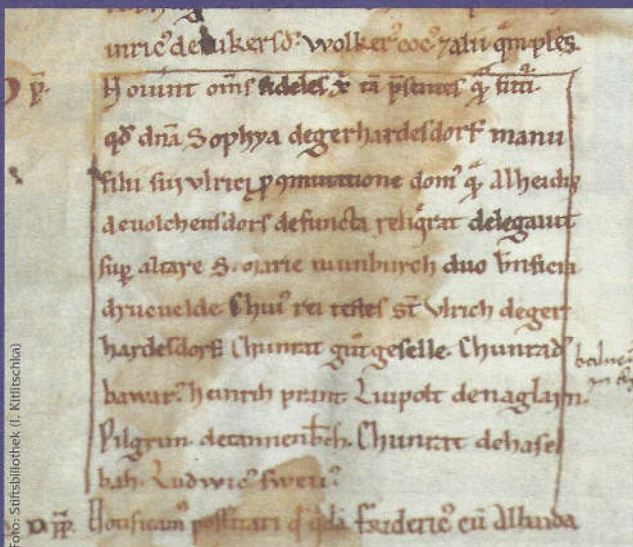 inric᾽ de wikersd᾽. Wolker᾽ coc᾽ ⁊ alii q̄mples
p̄. Nouint om̄s fideles x̄ tā p̄sentes q̄ᵃ futͥ.
qđ dn̄a Sophya de gerhardesdorf manu
filii sui vlrici p ꝯmutatione dom᾽ q̄ᵃ Alheidis
de uolchensdorf defuncta reliq̄rat delegauit
sup altare S. Marie niunburch duo b̄nficia
dri̇eu̇elde. Chui᾽ rei testes st̄ Vlrich de ger
hardesdorf Chunrat gůtgeselle. Chunrad᾽
bawar᾽. heinrih prant. Luipolt de naglarn.
Pilgrim. de tannenb̄ch. Chunrat de hasel
bah. Ludwic᾽ sweu᾽.
Notificam᾽ post᾽itati q᾽ q᾽dā frideric᾽ cū Alhaida
Foto: Stiftsbibliothek (I. Kitlitschka)